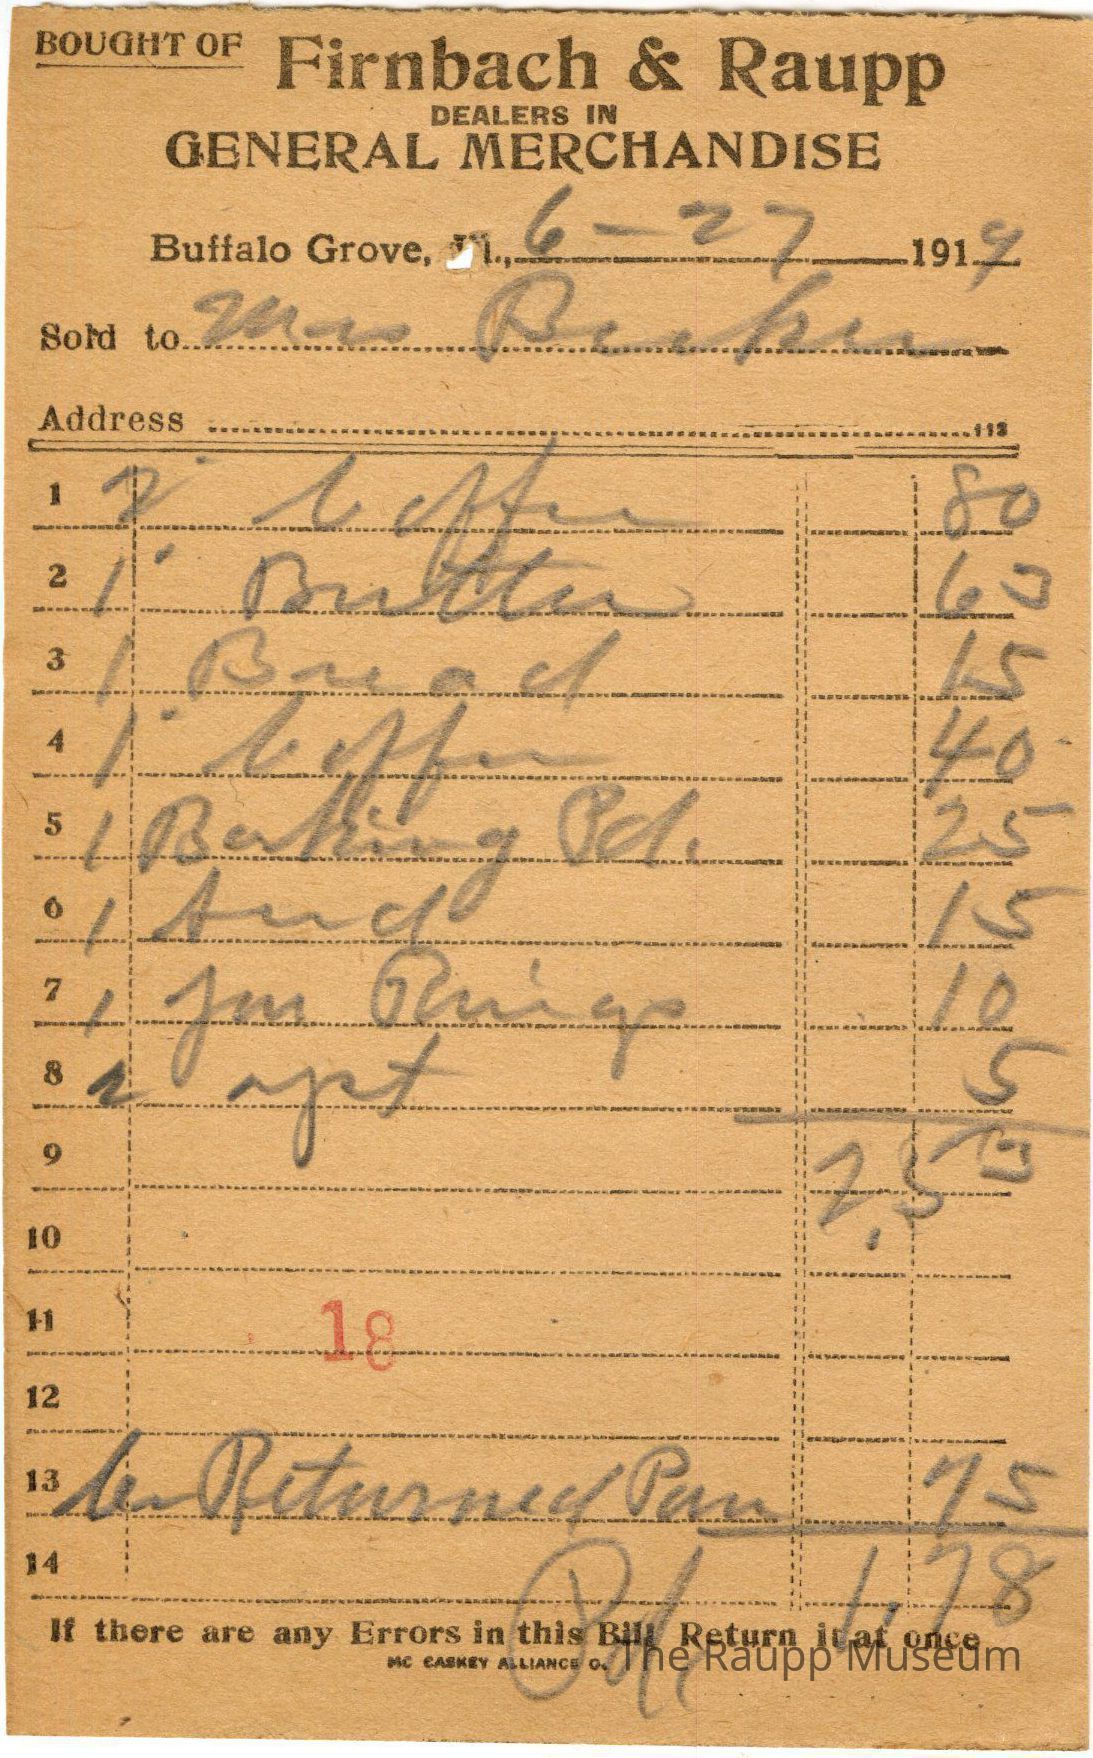 BOUGHT OF Firnbach & Raupp
DEALERS IN
GENERAL MERCHANDISE
Buffalo Grove, Ill., 6-27 1919
Sold to Mrs
Address 113
1 2 Coffee 80
2 1 Butter 63
3 1 Bread 15
4 1 Coffee 40
5 1 Baking Pd. 25
6 1 15
7 1 Jar Rings 10
8 2 5
9 2,53
10
11 18
12
13 Cr Returned Pan 75
14 Pd. 1.78
If there are any Errors in this Bill Return it at once
MC CASKEY ALLIANCE O.
The Raupp Museum